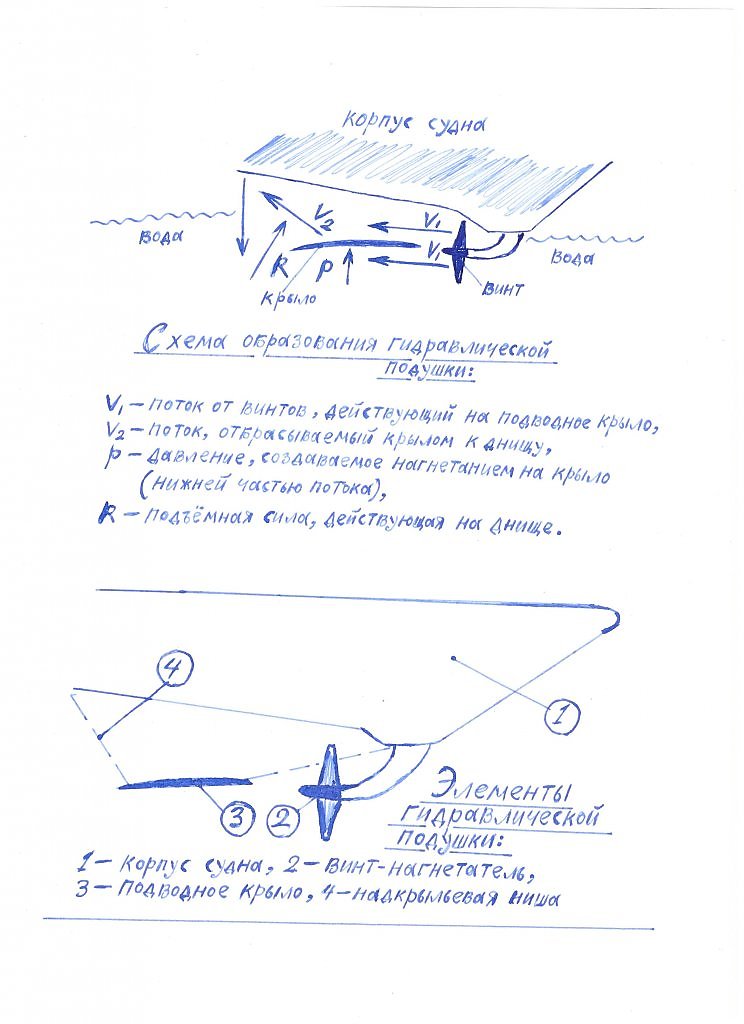 Корпус судна
V₂
V₁
вода
V₁
вода
R
P
винт
Крыло
Схема образования гидравлической
подушки:
V₁ – поток от винтов, действующий на подводное крыло,
V₂ – поток, отбрасываемый крылом к днищу,
P – давление, создаваемое нагнетанием на крыло
(нижней частью потока),
R – подъёмная сила, действующая на днище.
4
1
3
2
Элементы
гидравлической
подушки:
1 – Корпус судна, 2 – Винт-нагнетатель,
3 – Подводное крыло, 4 – надкрыльевая ниша